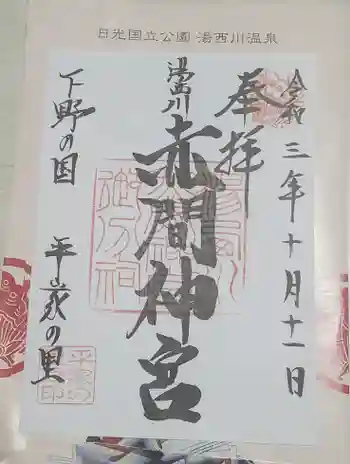 日光国立公園 湯西川温泉
令和三年十月十一日
奉拝
湯西川
赤間神宮
下野の国 平家の里